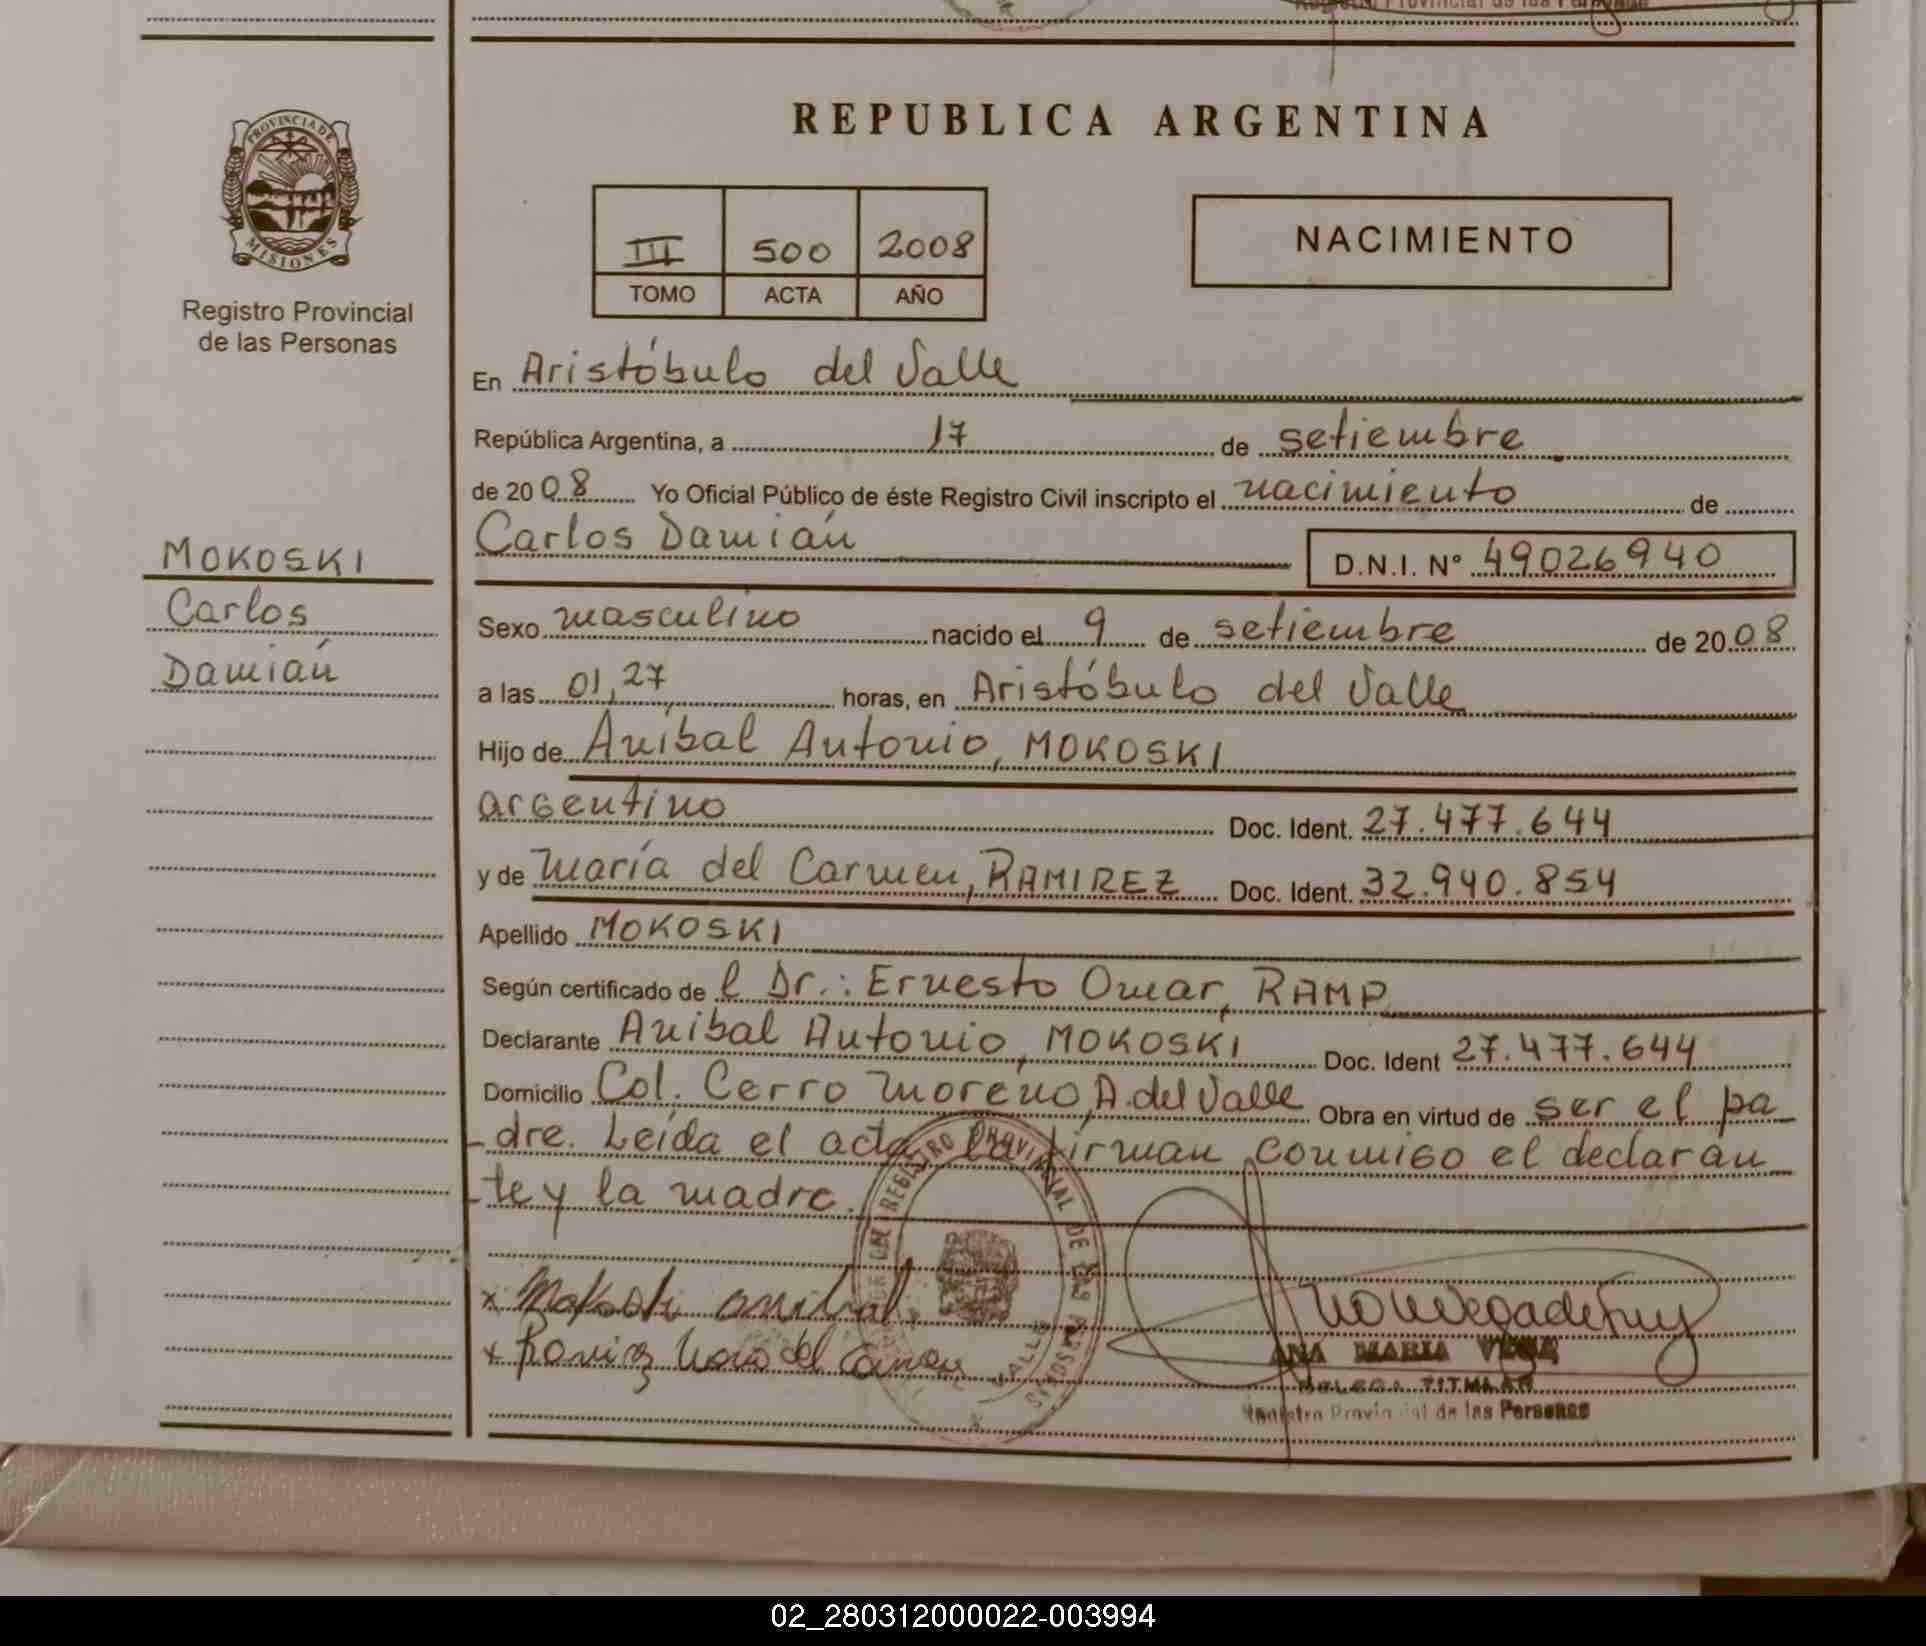 REPUBLICA ARGENTINA
PROVINCIA DE
MISIONES
Registro Provincial
de las Personas
III 500 2008
TOMO ACTA AÑO
NACIMIENTO
MOKOSKI
Carlos
Damián
En Aristóbulo del Valle
República Argentina, a 17 de setiembre
de 2008 Yo Oficial Público de éste Registro Civil inscripto el nacimiento de
Carlos Damián D.N.I. N° 49026940
Sexo masculino nacido el 9 de setiembre de 2008
a las 01,27 horas, en Aristóbulo del Valle
Hijo de Anibal Antonio, MOKOSKI
argentino Doc. Ident. 27.477.644
y de María del Carmen, RAMIREZ Doc. Ident. 32.940.854
Apellido MOKOSKI
Según certificado de l Dr.: Ernesto Omar, RAMP
Declarante Anibal Antonio, MOKOSKI Doc. Ident 27.477.644
Domicilio Col. Cerro Moreno, A. del Valle Obra en virtud de ser el pa
dre. Leída el acta la firman conmigo el declaran
te y la madre.
REGISTRO PROVINCIAL DE LAS PERSONAS
VALLE
x Mokoski anibal
x Ramirez Maria del Carmen
ANA MARIA VEGA
DELEGA TITULAR
Registro Provincial de las Personas
02_280312000022-003994